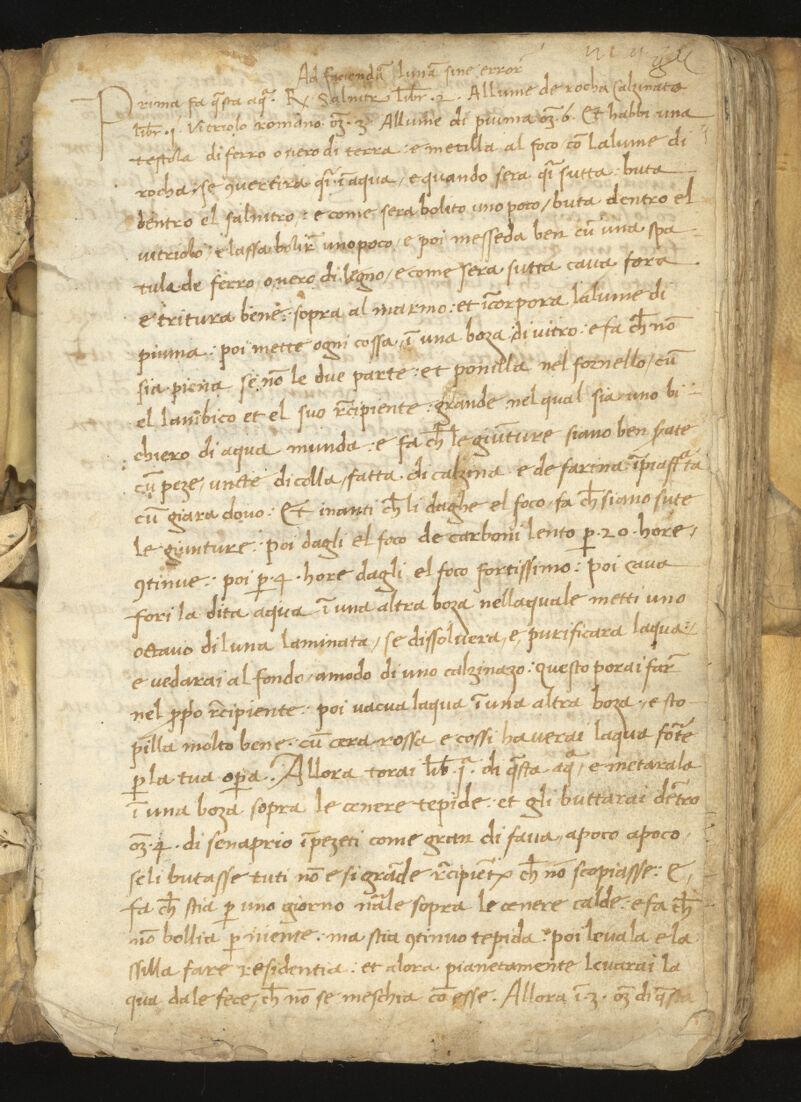 Ad faciendã lunã sine error
Prima fa q̃sta aq̃. Rx Salnitr libr̃ .2. Allume de rocha calinato
libr̃ .i. Vitriolo romano oz̃. 3. Allume di piuma oz̃. 6. Et habbi una
testola di ferro o nero di terra : e metilla al foco cõ lalume di
rocha, se 9vertira q̃i ĩ aqua, e quando sera q̃i sutta : buta
dentro el salnitro : e come sera bolito uno poco, buta dentro el
vitriolo : e lassa bolir̃ uno poco, e poi messeda ben cũ una spa-
tula de ferro, o nero di legno, e come sera sutta caua fora
e tritura bene : sopra al marmo : et ĩcorpora lalume di
piuma : poi mette ogni cossa, ĩ una boza di vitro : e fa ch̃ nõ
sia piena se nõ le due parte : et ponilla nel fornello, cũ
el lambico et el suo r̃cipiente : grande nel qual sia uno bi-
chiero di aqua munda : e fa ch̃ le giũture siano ben srate
cũ peze, uncte di colla, fatta di calzina e de farina ĩpiastr̃ta
cũ giara dovo : Et inanti ch̃ li daghe el foco, fa ch̃ siano sute
le giunture : poi dagli el foco de carboni lento p̱ .20. hore,
9tinue : poi p̱ .4. hore dagli el foco fortissimo : poi caua
fori la dita aqua ĩ una altra boza nellaquale metti uno
octauo di luna laminata, se dissoluera, e purificara laqua :
e vedarai al fondo, amodo di uno calzinazo : questo porai far̃
nel p̱p̱o r̃cipiente : poi vacua laqua ĩ una altra boza, e sto-
p̱illa molto bene : cũ cera rossa e cossi haverai laqua fõte
p̱ la tua op̱a. Allora torai lib̃ .i. di q̃sta aq̃, e metarala
ĩ una boza sopra le cenere tepide : et gli buttarai dẽtro
oz̃ .4. di senaprio ĩ pezeti come gran di faua, apoco apoco,
se li butasse tuti nõ e si grãde r̃cipiẽt ch̃ nõ scopiasse : E,
fa ch̃ stia p̱ uno giorno nãle sopra le cenere calde : e fa ch̃
nõ bollia p̱ niente : ma stia 9tinuo tepida : poi levala e la
ssilla fare residentia : et alora pianetamente levarai la
qua dale fece, ch̃ nõ se meschia cõ esse. Allora ĩ .3. oz̃ di q̃sta